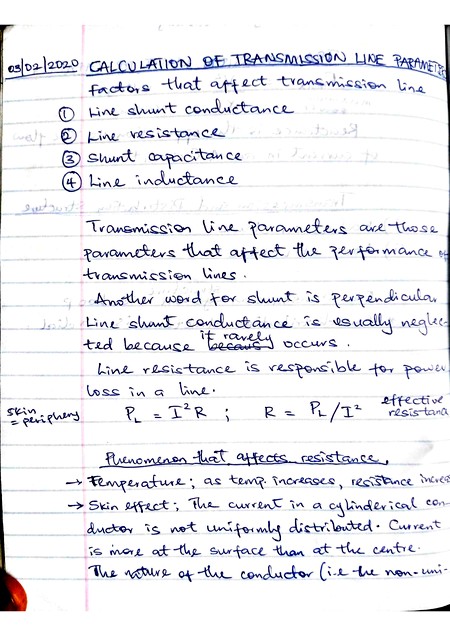 03/02/2020 CALCULATION OF TRANSMISSION LINE PARAMETE
factors that affect transmission line
① Line shunt conductance
② Line resistance
③ Shunt capacitance
④ Line inductance
Transmission line parameters are those
parameters that affect the performance of
transmission lines.
Another word for shunt is perpendicular
Line shunt conductance is usually neglec-
ted because it rarely occurs.
Line resistance is responsible for power
loss in a line.
skin = periphery
P_L = I²R ; R = P_L/I² effective resistance
Phenomenon that affects resistance,
→ Temperature; as temp. increases, resistance increas
→ Skin effect; The current in a cylinderical con-
ductor is not uniformly distributed. Current
is more at the surface than at the centre.
The nature of the conductor (i.e the non-uni-